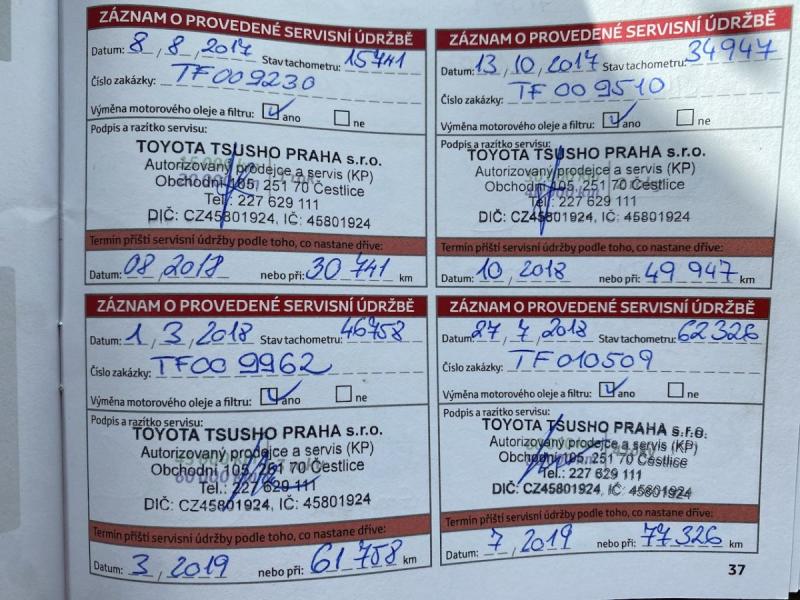 ZÁZNAM O PROVEDENÉ SERVISNÍ ÚDRŽBĚ
Datum: 8 / 8 / 2017 Stav tachometru: 15741
Číslo zakázky: TF009230
Výměna motorového oleje a filtru: ano ne
Podpis a razítko servisu:
TOYOTA TSUSHO PRAHA s.r.o.
Autorizovaný prodejce a servis (KP)
Obchodní 105, 251 70 Čestlice
Tel.: 227 629 111
DIČ: CZ45801924, IČ: 45801924
Termín příští servisní údržby podle toho, co nastane dříve:
Datum: 08 / 2018 nebo při: 30 741 km
ZÁZNAM O PROVEDENÉ SERVISNÍ ÚDRŽBĚ
Datum: 13 / 10 / 2017 Stav tachometru: 34947
Číslo zakázky: TF 009510
Výměna motorového oleje a filtru: ano ne
Podpis a razítko servisu:
TOYOTA TSUSHO PRAHA s.r.o.
Autorizovaný prodejce a servis (KP)
Obchodní 105, 251 70 Čestlice
Tel.: 227 629 111
DIČ: CZ45801924, IČ: 45801924
Termín příští servisní údržby podle toho, co nastane dříve:
Datum: 10 / 2018 nebo při: 49 947 km
ZÁZNAM O PROVEDENÉ SERVISNÍ ÚDRŽBĚ
Datum: 1 / 3 / 2018 Stav tachometru: 46758
Číslo zakázky: TF00 9962
Výměna motorového oleje a filtru: ano ne
Podpis a razítko servisu:
TOYOTA TSUSHO PRAHA s.r.o.
Autorizovaný prodejce a servis (KP)
Obchodní 105, 251 70 Čestlice
Tel.: 227 629 111
DIČ: CZ45801924, IČ: 45801924
Termín příští servisní údržby podle toho, co nastane dříve:
Datum: 3 / 2019 nebo při: 61 758 km
ZÁZNAM O PROVEDENÉ SERVISNÍ ÚDRŽBĚ
Datum: 27 / 7 / 2018 Stav tachometru: 62326
Číslo zakázky: TF010509
Výměna motorového oleje a filtru: ano ne
Podpis a razítko servisu:
TOYOTA TSUSHO PRAHA s.r.o.
Autorizovaný prodejce a servis (KP)
Obchodní 105, 251 70 Čestlice
Tel.: 227 629 111
DIČ: CZ45801924, IČ: 45801924
Termín příští servisní údržby podle toho, co nastane dříve:
Datum: 7 / 2019 nebo při: 77 326 km
37